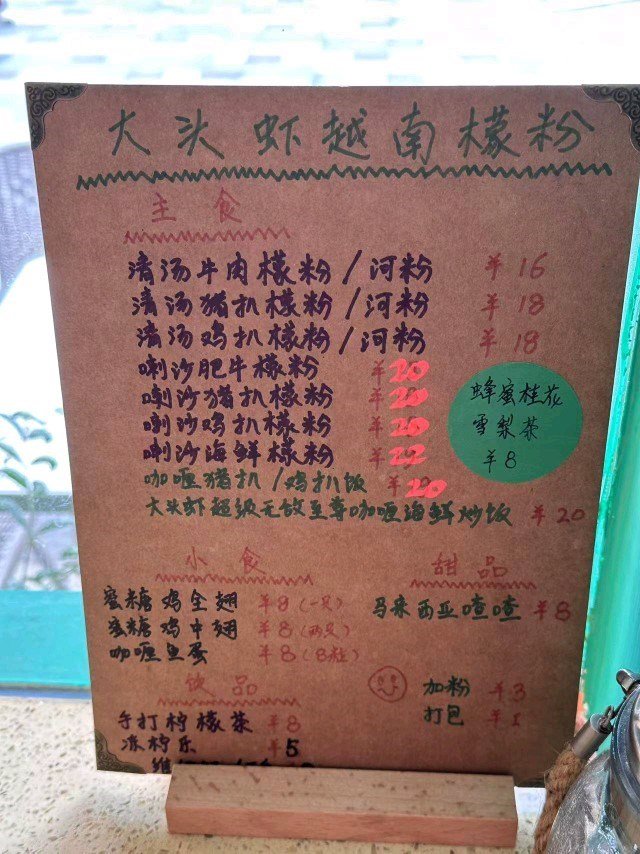 大头虾越南檬粉
主食
清汤牛肉檬粉/河粉 ¥16
清汤猪扒檬粉/河粉 ¥18
清汤鸡扒檬粉/河粉 ¥18
喇沙肥牛檬粉 ¥20
喇沙猪扒檬粉 ¥20
喇沙鸡扒檬粉 ¥20
喇沙海鲜檬粉 ¥22
咖喱猪扒/鸡扒饭 ¥20
大头虾超级无敌至尊咖喱海鲜炒饭 ¥20
蜂蜜桂花
雪梨茶
¥8
小食
蜜糖鸡全翅 ¥8(一只)
蜜糖鸡中翅 ¥8(两只)
咖喱鱼蛋 ¥8(8粒)
甜品
马来西亚喳喳 ¥8
饮品
手打柠檬茶 ¥8
冻柠乐 ¥5
维
加粉 ¥3
打包 ¥1